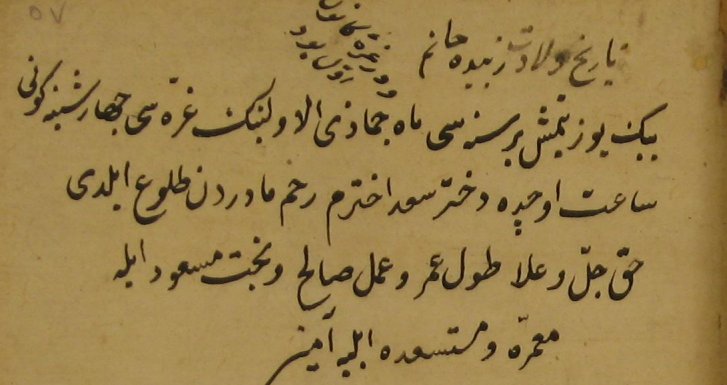 تاریخ ولادت زبیده خانم
بیك یوز یتمش بر سنه سی ماه جماذی الاولینك غرّه سی چهارشنبه كونی
ساعت اوچده دختر سعد اخترم رحم مادردن طلوع ایلدی
حق جلّ و علا طول عمر و عمل صالح و بخت مسعود ایله
معمرّه و مستسعده ایلیه آمین
۵۷